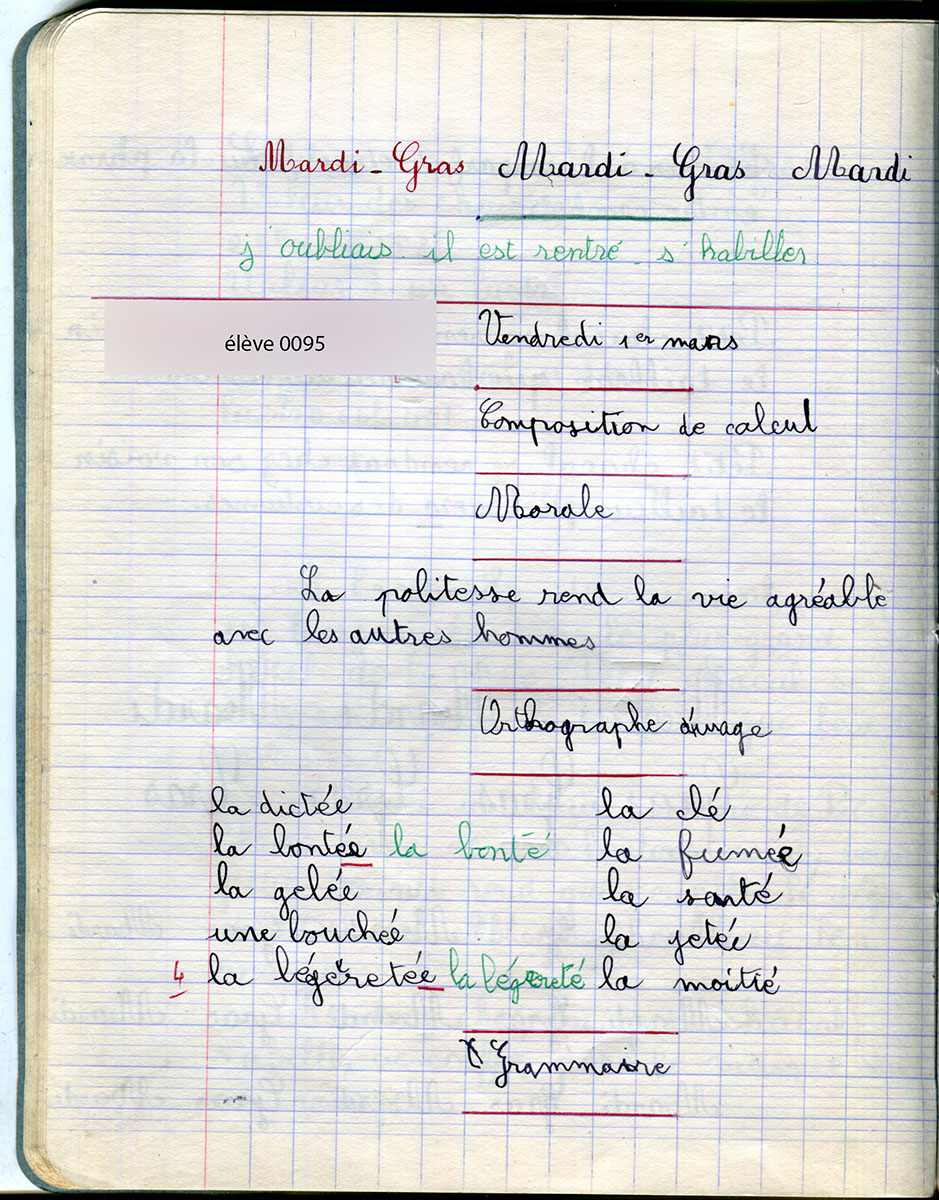 Mardi-Gras Mardi-Gras Mardi
j'oubliais il est rentré s'habiller
élève 0095
Vendredi 1er mars
Composition de calcul
Morale
La politesse rend la vie agréable
avec les autres hommes
Orthographe d'usage
la dictée la clé
la bontée la bonté la fumée
la gelée la santé
une bouchée la jetée
4 la légèretée la légereté la moitié
Grammaire